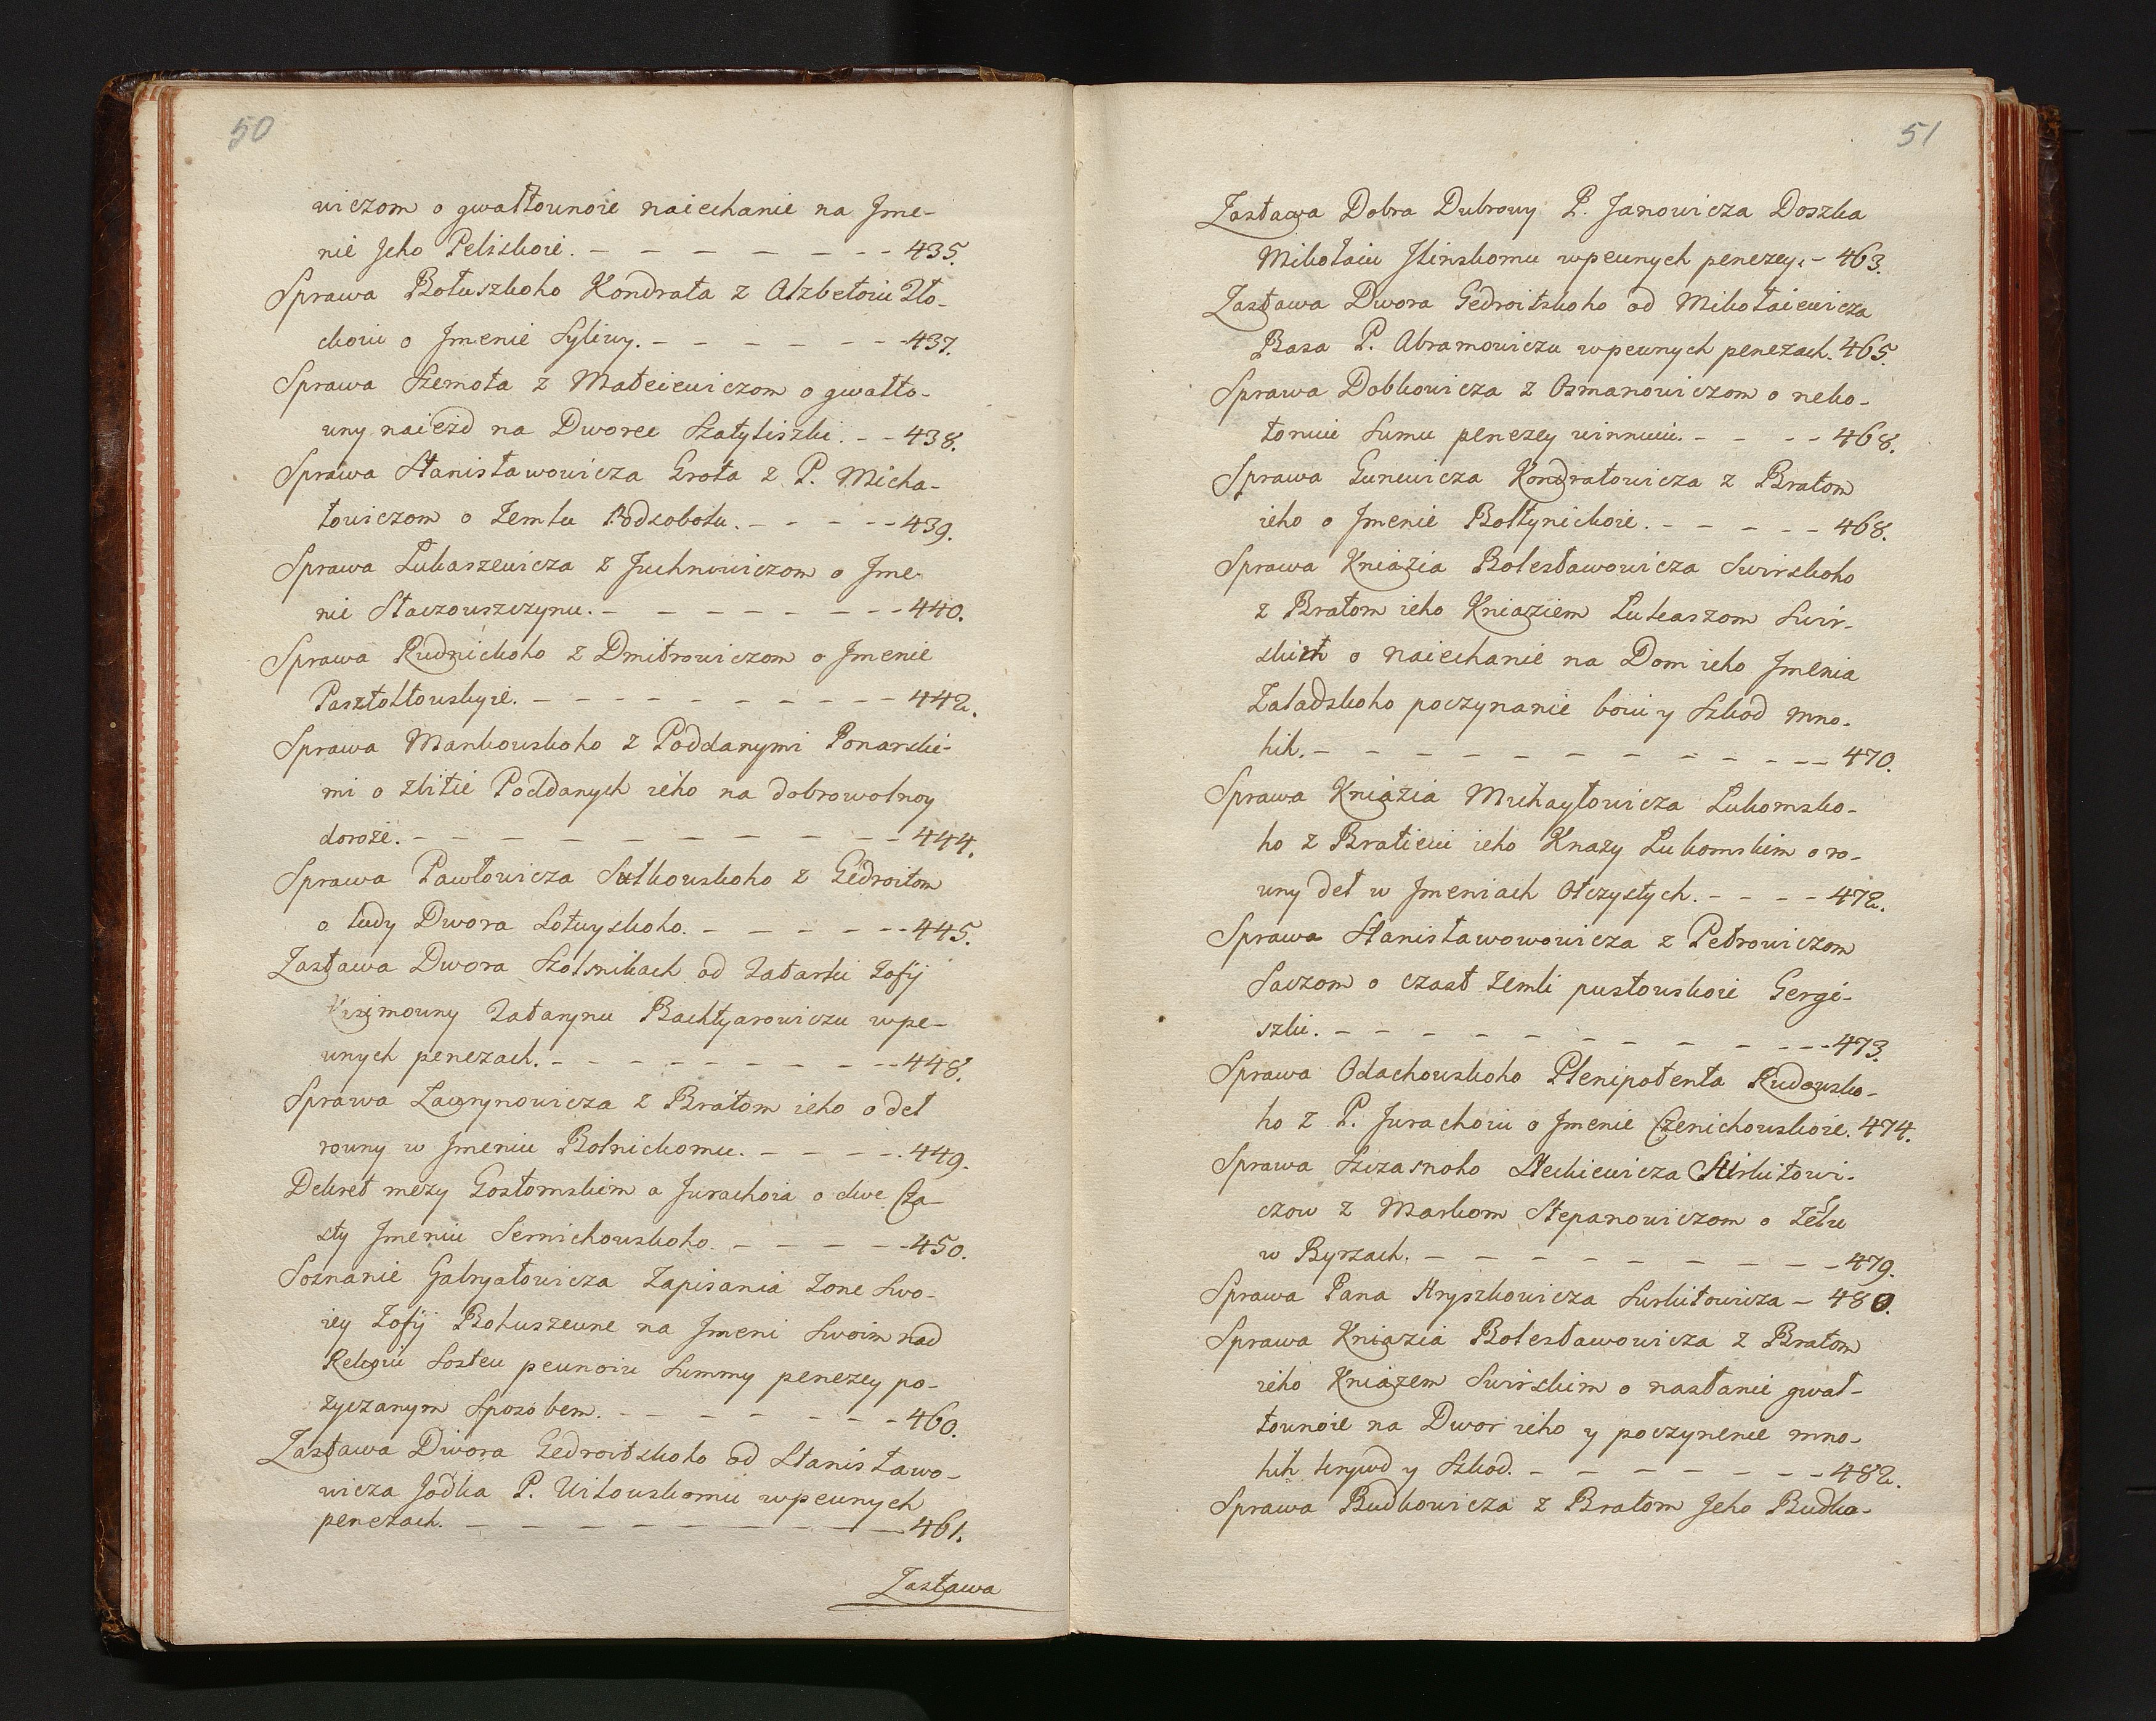 50
wiczom o gwałtounoie naiechanie na Jme-
nie Jeho Peliskoie. - - - - - - - 435.
Sprawa Bołuszkoho Kondrata z Alzbetoiu Zło-
ckoiu o Jmenie Syliwy. - - - - - - 437.
Sprawa Szemota z Mateiewiczom o gwałto-
uny naiezd na Dworec Szatyliszki. - - 438.
Sprawa Stanisławowicza Grota z P. Micha-
łowiczom o Zemlu Podsobolu. - - - - 439.
Sprawa Lukaszewicza z Juchnowiczom o Jme-
nie Staczouszczynu. - - - - - - - 440.
Sprawa Rudnickoho z Dmitrowiczom o Jmenie
Pasztoltouskyie. - - - - - - - - - 442.
Sprawa Mankouskoho z Poddanymi Ponarski-
mi o zbitie Poddanych ieho na dobrowolnoy
doroże. - - - - - - - - - - 444.
Sprawa Pawłowicza Sutkouskoho z Gedroitom
o ludy Dwora Łotwyskoho. - - - - - 445.
Zastawa Dwora Szolsnikach od Tatarki Zofij
Kizimouny Tatarynu Bachtyarowiczu wpe-
unych penezach. - - - - - - - - 448.
Sprawa Lawrynowicza z Bratom ieho o deł
rouny w Jmeniu Bolnickomu. - - - - 449.
Dekret mezy Gostomskim a Jurachoia o dwe Cza-
sty Jmeniu Sernichouskoho. - - - - - 450.
Soznanie Gabryałowicza Zapisania Zone Swo-
iey Zofij Bohuszeune na Jmeni Swoim nad
Rekoiu Sosteu peunoiu Summy penezey po-
zyczanym Sposobem. - - - - - - - 460.
Zastawa Dwora Gedroitskoho od Stanisławo-
wicza Jodka P. Witouskomu wpeunych
penezach. - - - - - - - - - 461.
Zastawa
51
Zastawa Dobra Dubrowy P. Janowicza Doszka
Mikołaiu Jlinskomu wpeunych penezey. - 463.
Zastawa Dwora Gedroitskoho od Mikołaiewicza
Basa P. Abramowiczu wpeunych penezach. 465.
Sprawa Dobkowicza z Osmanowiczom o neko-
toruiu Sumu penezey winnuiu. - - - - 468.
Sprawa Gunewicza Kondratowicza z Bratom
ieho o Jmenie Bołtynickoie. - - - - - 468.
Sprawa Kniazia Bolesławowicza Swirskoho
z Bratom ieho Kniaziem Lukaszom Swir-
skim o naiechanie na Dom ieho Jmenia
Zaladskoho poczynanie boiu y Szkod mno-
hih. - - - - - - - - - - - 470.
Sprawa Kniazia Michayłowicza Lukomsko-
ho z Bratieiu ieho Knazy Lukomskim o ro-
uny deł w Jmeniach Otczystych. - - - - 472.
Sprawa Stanisławowowicza z Petrowiczom
Saczom o czast Zemli pustouskoie Gergi-
szki. - - - - - - - - - - - 473.
Sprawa Odachouskoho Plenipotenta Rudousko-
ho z P. Jurachoiu o Jmenie Czernichouskoie. 474.
Sprawa Szczasnoho Steckiewicza Skirbitowi-
czow z Markom Stepanowiczom o Zebu
w Byrzach. - - - - - - - - - 479.
Sprawa Pana Hryszkowicza Surbitowicza - 480.
Sprawa Kniazia Bolesławowicza z Bratom
ieho Kniazem Swirskim o nasłanie gwał-
tounoie na Dwor ieho y poczynenie mno-
hih krywd y Szkod. - - - - - - - 482.
Sprawa Budkowicza z Bratom Jeho Budko-